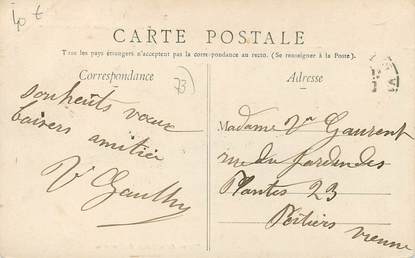 40 €
CARTE POSTALE
Tous les pays étrangers n'acceptent pas la correspondance au recto. (Se renseigner à la Poste).
Correspondance
73
Adresse
souhaits vœux
baisers amitié
V Gauthy
Madame Vve Gaurent
rue du jardin des
Plantes 23
Poitiers vienne